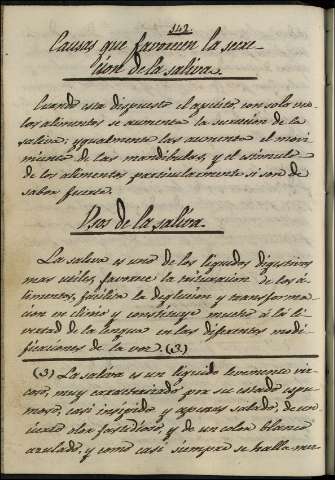 142
Causas que favorecen la secre-
cion de la saliva.
Cuando esta dispuesto el apetito, con solo ver
los alimentos se aumenta la secrecion de la
saliva; ygualmente las aumenta el movi-
miento de las mandibulas, y el estimulo
de los alimentos particularmente si son de
sabor fuerte.
Usos de la saliva.
La saliva es uno de los liquidos digestivos
mas utiles, favorece la trituracion de los á-
limentos, facilita la deglucion y transforma-
cion en climo y constituye mucho á la li-
vretad de la lengua en las diferentes modi-
ficaciones de la voz. (3)
(3) La saliva es un liquido levemente vis-
coso, muy caracterizado por su estado espu-
moso, casi insipido y apenas salado, de un
cierto olor fastidioso, y de un color blanco
azulado, y como casi siempre se halla mez-